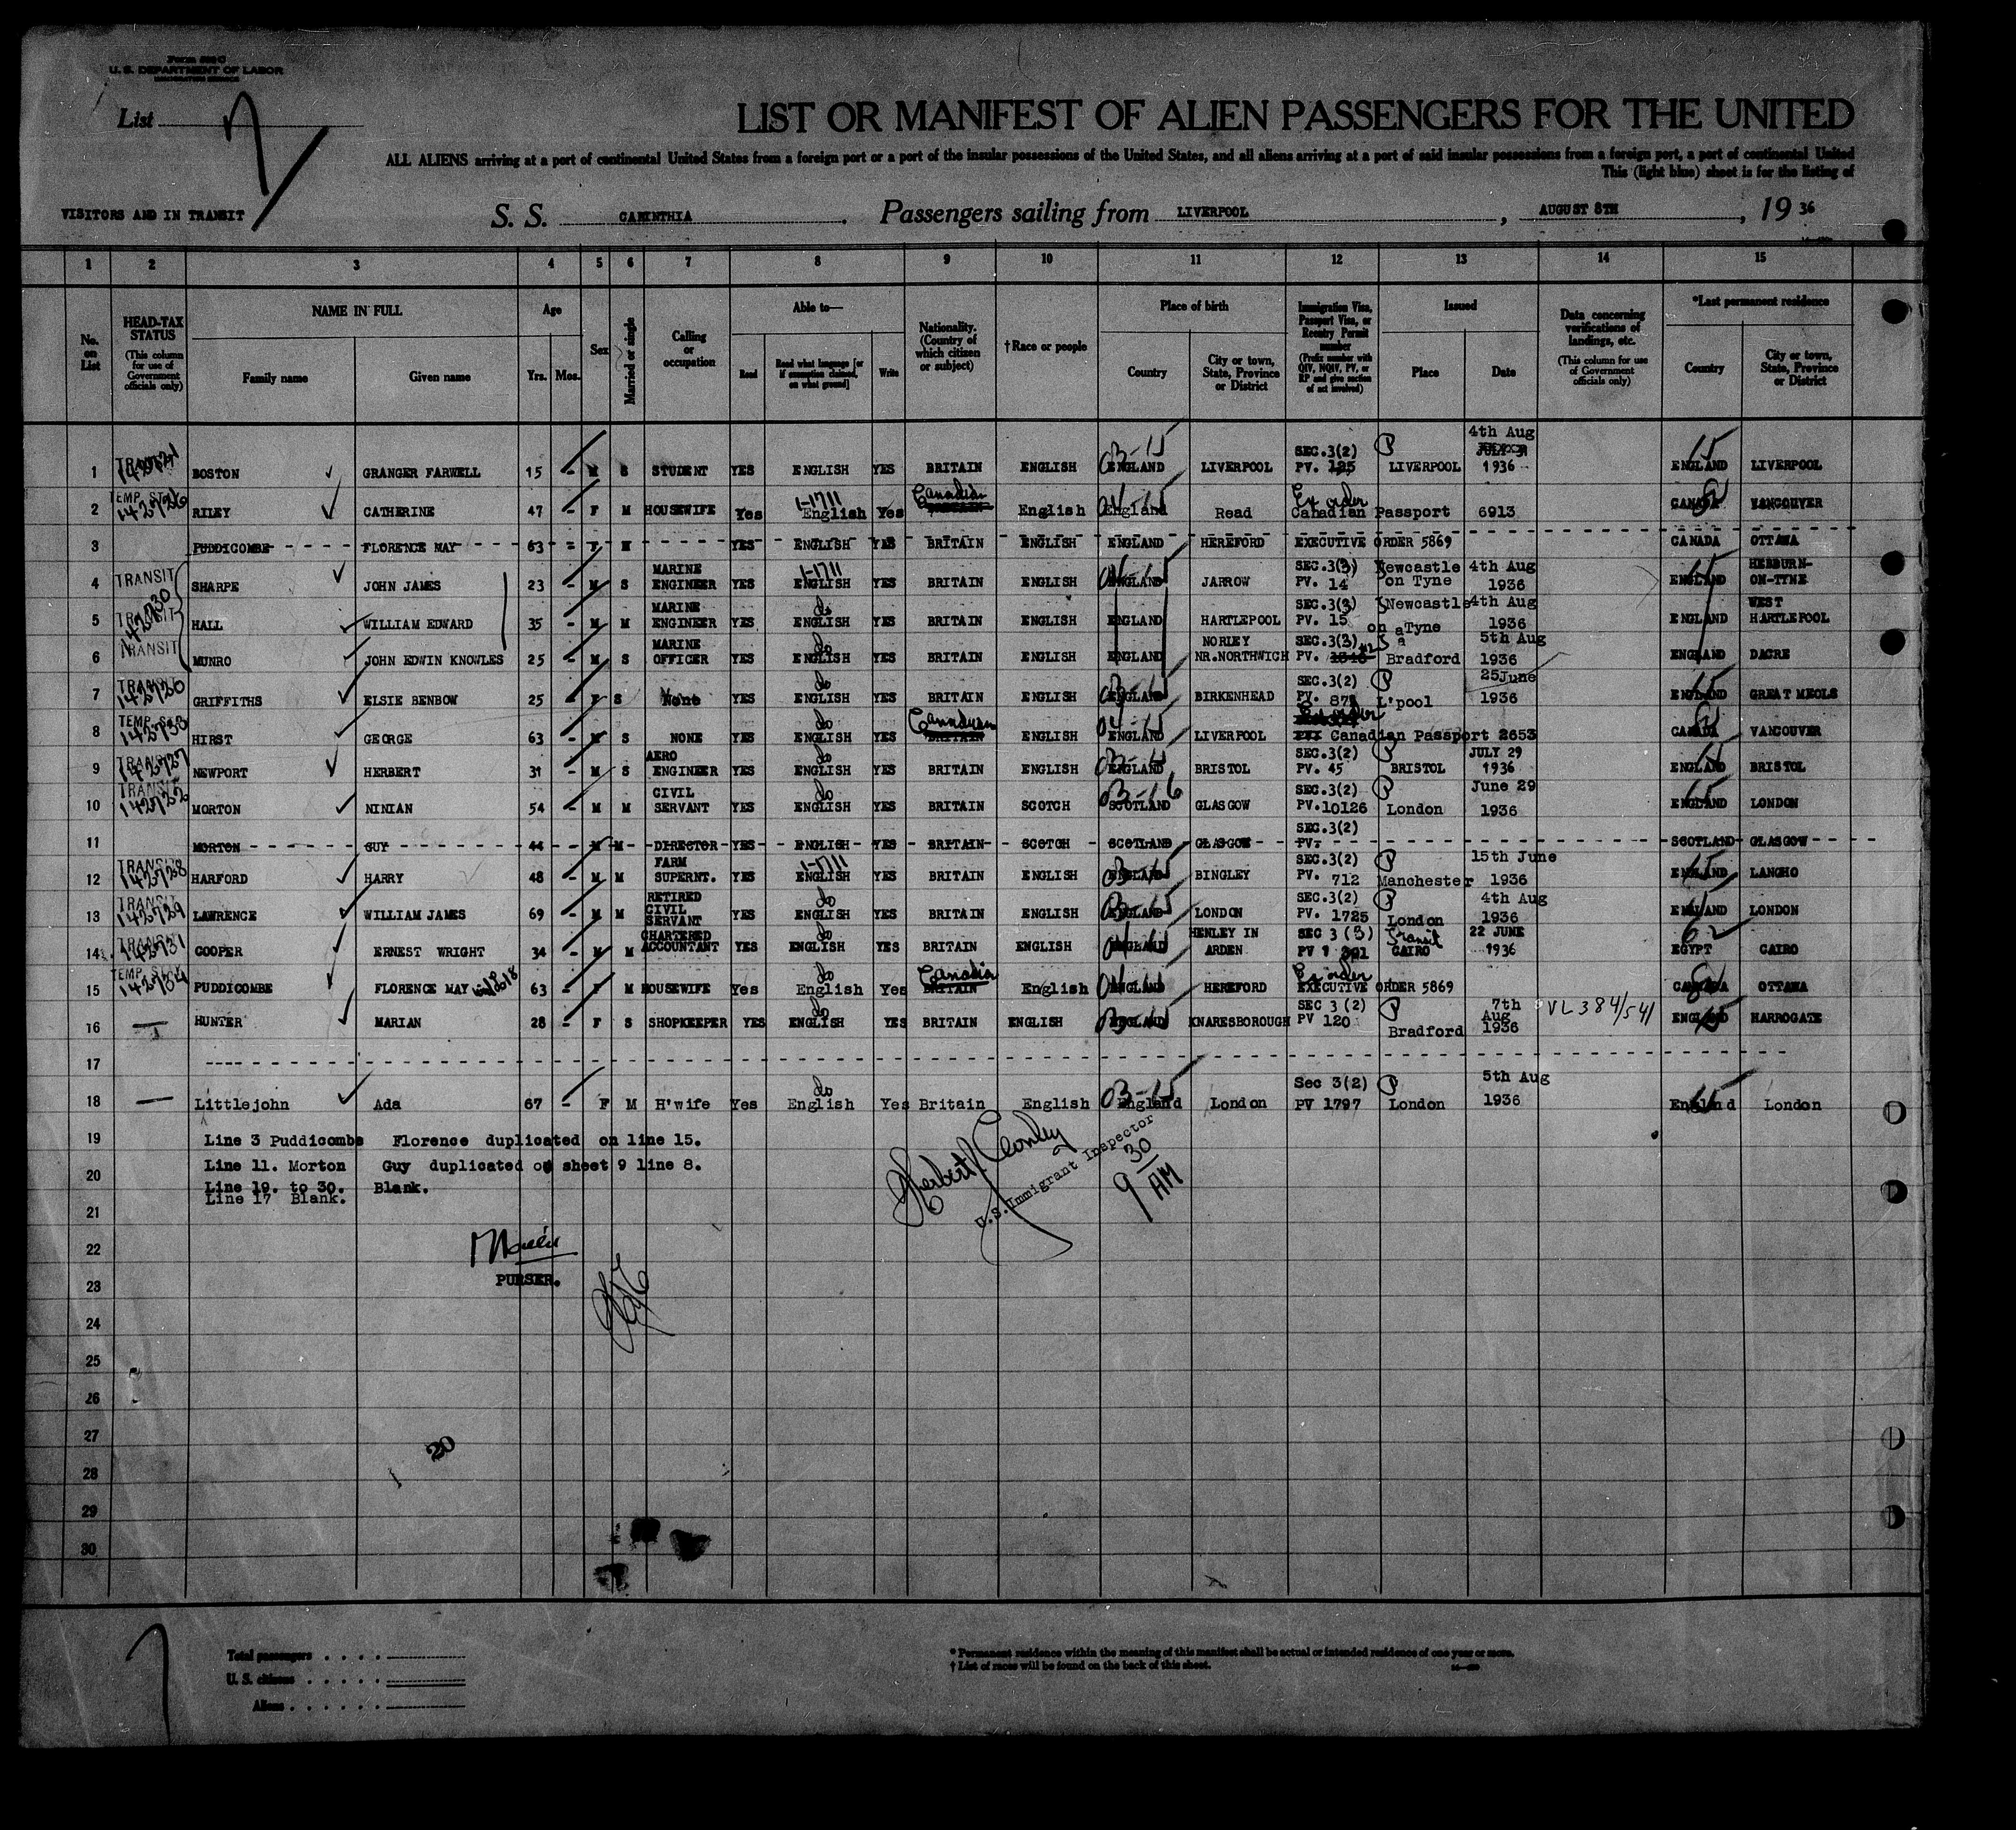 Form 500 C
U. S. DEPARTMENT OF LABOR
IMMIGRATION SERVICE
List 7
LIST OR MANIFEST OF ALIEN PASSENGERS FOR THE UNITED
ALL ALIENS arriving at a port of continental United States from a foreign port or a port of the insular possessions of the United States, and all aliens arriving at a port of said insular possessions from a foreign port, a port of continental United
This (light blue) sheet is for the listing of
VISITORS AND IN TRANSIT S. S. CARINTHIA . Passengers sailing from LIVERPOOL , AUGUST 8TH , 19 36
1 2 3 4 5 6 7 8 9 10 11 12 13 14 15
No. on List
HEAD-TAX STATUS (This column for use of Government officials only)
NAME IN FULL Family name Given name
Age Yrs. Mos.
Sex
Married or single
Calling or occupation
Able to— Read Read what language [or if exemption claimed, on what ground] Write
Nationality. (Country of which citizen or subject)
†Race or people
Place of birth Country City or town, State, Province or District
Immigration Visa, Passport Visa, or Reentry Permit number (Prefix number with QIV, NQIV, PV, or RP and give section of act involved)
Issued Place Date
Data concerning verifications of landings, etc. (This column for use of Government officials only)
*Last permanent residence Country City or town, State, Province or District
1 TRANSIT BOSTON GRANGER FARWELL 15 - M S STUDENT YES ENGLISH YES BRITAIN ENGLISH 03-15 ENGLAND LIVERPOOL SEC.3(2) PV. 125 P LIVERPOOL 4th Aug 1936 15 ENGLAND LIVERPOOL
2 TEMP. STAY 142726 RILEY CATHERINE 47 - F M HOUSEWIFE Yes 1-1711 English Yes Canadian BRITAIN English England Read Ex order Canadian Passport 6913 CANADA VANCOUVER
3 PUDDICOMBE FLORENCE MAY 63 - F M YES ENGLISH YES BRITAIN ENGLISH ENGLAND HEREFORD EXECUTIVE ORDER 5869 CANADA OTTAWA
4 TRANSIT SHARPE JOHN JAMES 23 - M S MARINE ENGINEER YES 1-1711 ENGLISH YES BRITAIN ENGLISH 04-15 ENGLAND JARROW SEC.3(3) PV. 14 Newcastle on Tyne 4th Aug 1936 15 ENGLAND HEBBURN-ON-TYNE
5 TRANSIT 142730 HALL WILLIAM EDWARD 35 - M M MARINE ENGINEER YES do ENGLISH YES BRITAIN ENGLISH ENGLAND HARTLEPOOL SEC.3(3) PV. 15 Newcastle on Tyne 4th Aug 1936 ENGLAND WEST HARTLEPOOL
6 TRANSIT MUNRO JOHN EDWIN KNOWLES 25 - M S MARINE OFFICER YES do ENGLISH YES BRITAIN ENGLISH ENGLAND NORLEY NR.NORTHWICH SEC.3(3) PV. Bradford 5th Aug 1936 ENGLAND DACRE
7 TRANSIT GRIFFITHS ELSIE BENBOW 25 - F S None YES do ENGLISH YES BRITAIN ENGLISH 03-15 ENGLAND BIRKENHEAD SEC.3(2) PV. P L'pool 25 June 1936 15 ENGLAND GREAT MEOLS
8 TEMP. STAY HIRST GEORGE 63 - M S NONE YES do ENGLISH YES Canadian BRITAIN ENGLISH 04-15 ENGLAND LIVERPOOL Ex order Canadian Passport 2653 CANADA VANCOUVER
9 TRANSIT 142727 NEWPORT HERBERT 31 - M S AERO ENGINEER YES do ENGLISH YES BRITAIN ENGLISH 03-15 ENGLAND BRISTOL SEC.3(2) PV. 45 P BRISTOL JULY 29 1936 15 ENGLAND BRISTOL
10 TRANSIT MORTON NINIAN 54 - M M CIVIL SERVANT YES do ENGLISH YES BRITAIN SCOTCH 03-16 SCOTLAND GLASGOW SEC.3(2) PV.10126 P London June 29 1936 15 ENGLAND LONDON
11 MORTON GUY 44 - M M DIRECTOR YES ENGLISH YES BRITAIN SCOTCH SCOTLAND GLASGOW SEC.3(2) PV. SCOTLAND GLASGOW
12 TRANSIT 142728 HARFORD HARRY 48 - M M FARM SUPERNT. YES 1-1711 ENGLISH YES BRITAIN ENGLISH 03-15 ENGLAND BINGLEY SEC.3(2) PV. 712 P Manchester 15th June 1936 15 ENGLAND LANGHO
13 TRANSIT 142729 LAWRENCE WILLIAM JAMES 69 - M M RETIRED CIVIL SERVANT YES do ENGLISH YES BRITAIN ENGLISH 03-15 ENGLAND LONDON SEC.3(2) PV. 1725 P London 4th Aug 1936 15 ENGLAND LONDON
14 TRANSIT 142731 COOPER ERNEST WRIGHT 34 - M M CHARTERED ACCOUNTANT YES do ENGLISH YES BRITAIN ENGLISH 04-15 ENGLAND HENLEY IN ARDEN SEC 3 (3) PV Transit CAIRO 22 JUNE 1936 62 EGYPT CAIRO
15 TEMP. STAY 142734 PUDDICOMBE FLORENCE MAY 63 - F M HOUSEWIFE Yes do English Yes Canadian BRITAIN English ENGLAND HEREFORD Ex order EXECUTIVE ORDER 5869 CANADA OTTAWA
16 — HUNTER MARIAN 28 - F S SHOPKEEPER YES do ENGLISH YES BRITAIN ENGLISH 03-15 ENGLAND KNARESBOROUGH SEC 3 (2) PV 120 P Bradford 7th Aug 1936 VL 384/541 15 ENGLAND HARROGATE
17
18 — Littlejohn Ada 67 - F M H'wife Yes do English Yes Britain English 03-15 England London Sec 3(2) PV 1797 P London 5th Aug 1936 15 England London
19 Line 3 Puddicombe Florence duplicated on line 15.
20 Line 11. Morton Guy duplicated on sheet 9 line 8.
Line 19. to 30. Blank.
Line 17 Blank.
21
U.S. Immigrant Inspector
9 30 AM
22
23 PURSER.
24
25
26
27 20
28
29
30
Total passengers
U. S. citizens
Aliens
* Permanent residence within the meaning of this manifest shall be actual or intended residence of one year or more.
† List of races will be found on the back of this sheet.